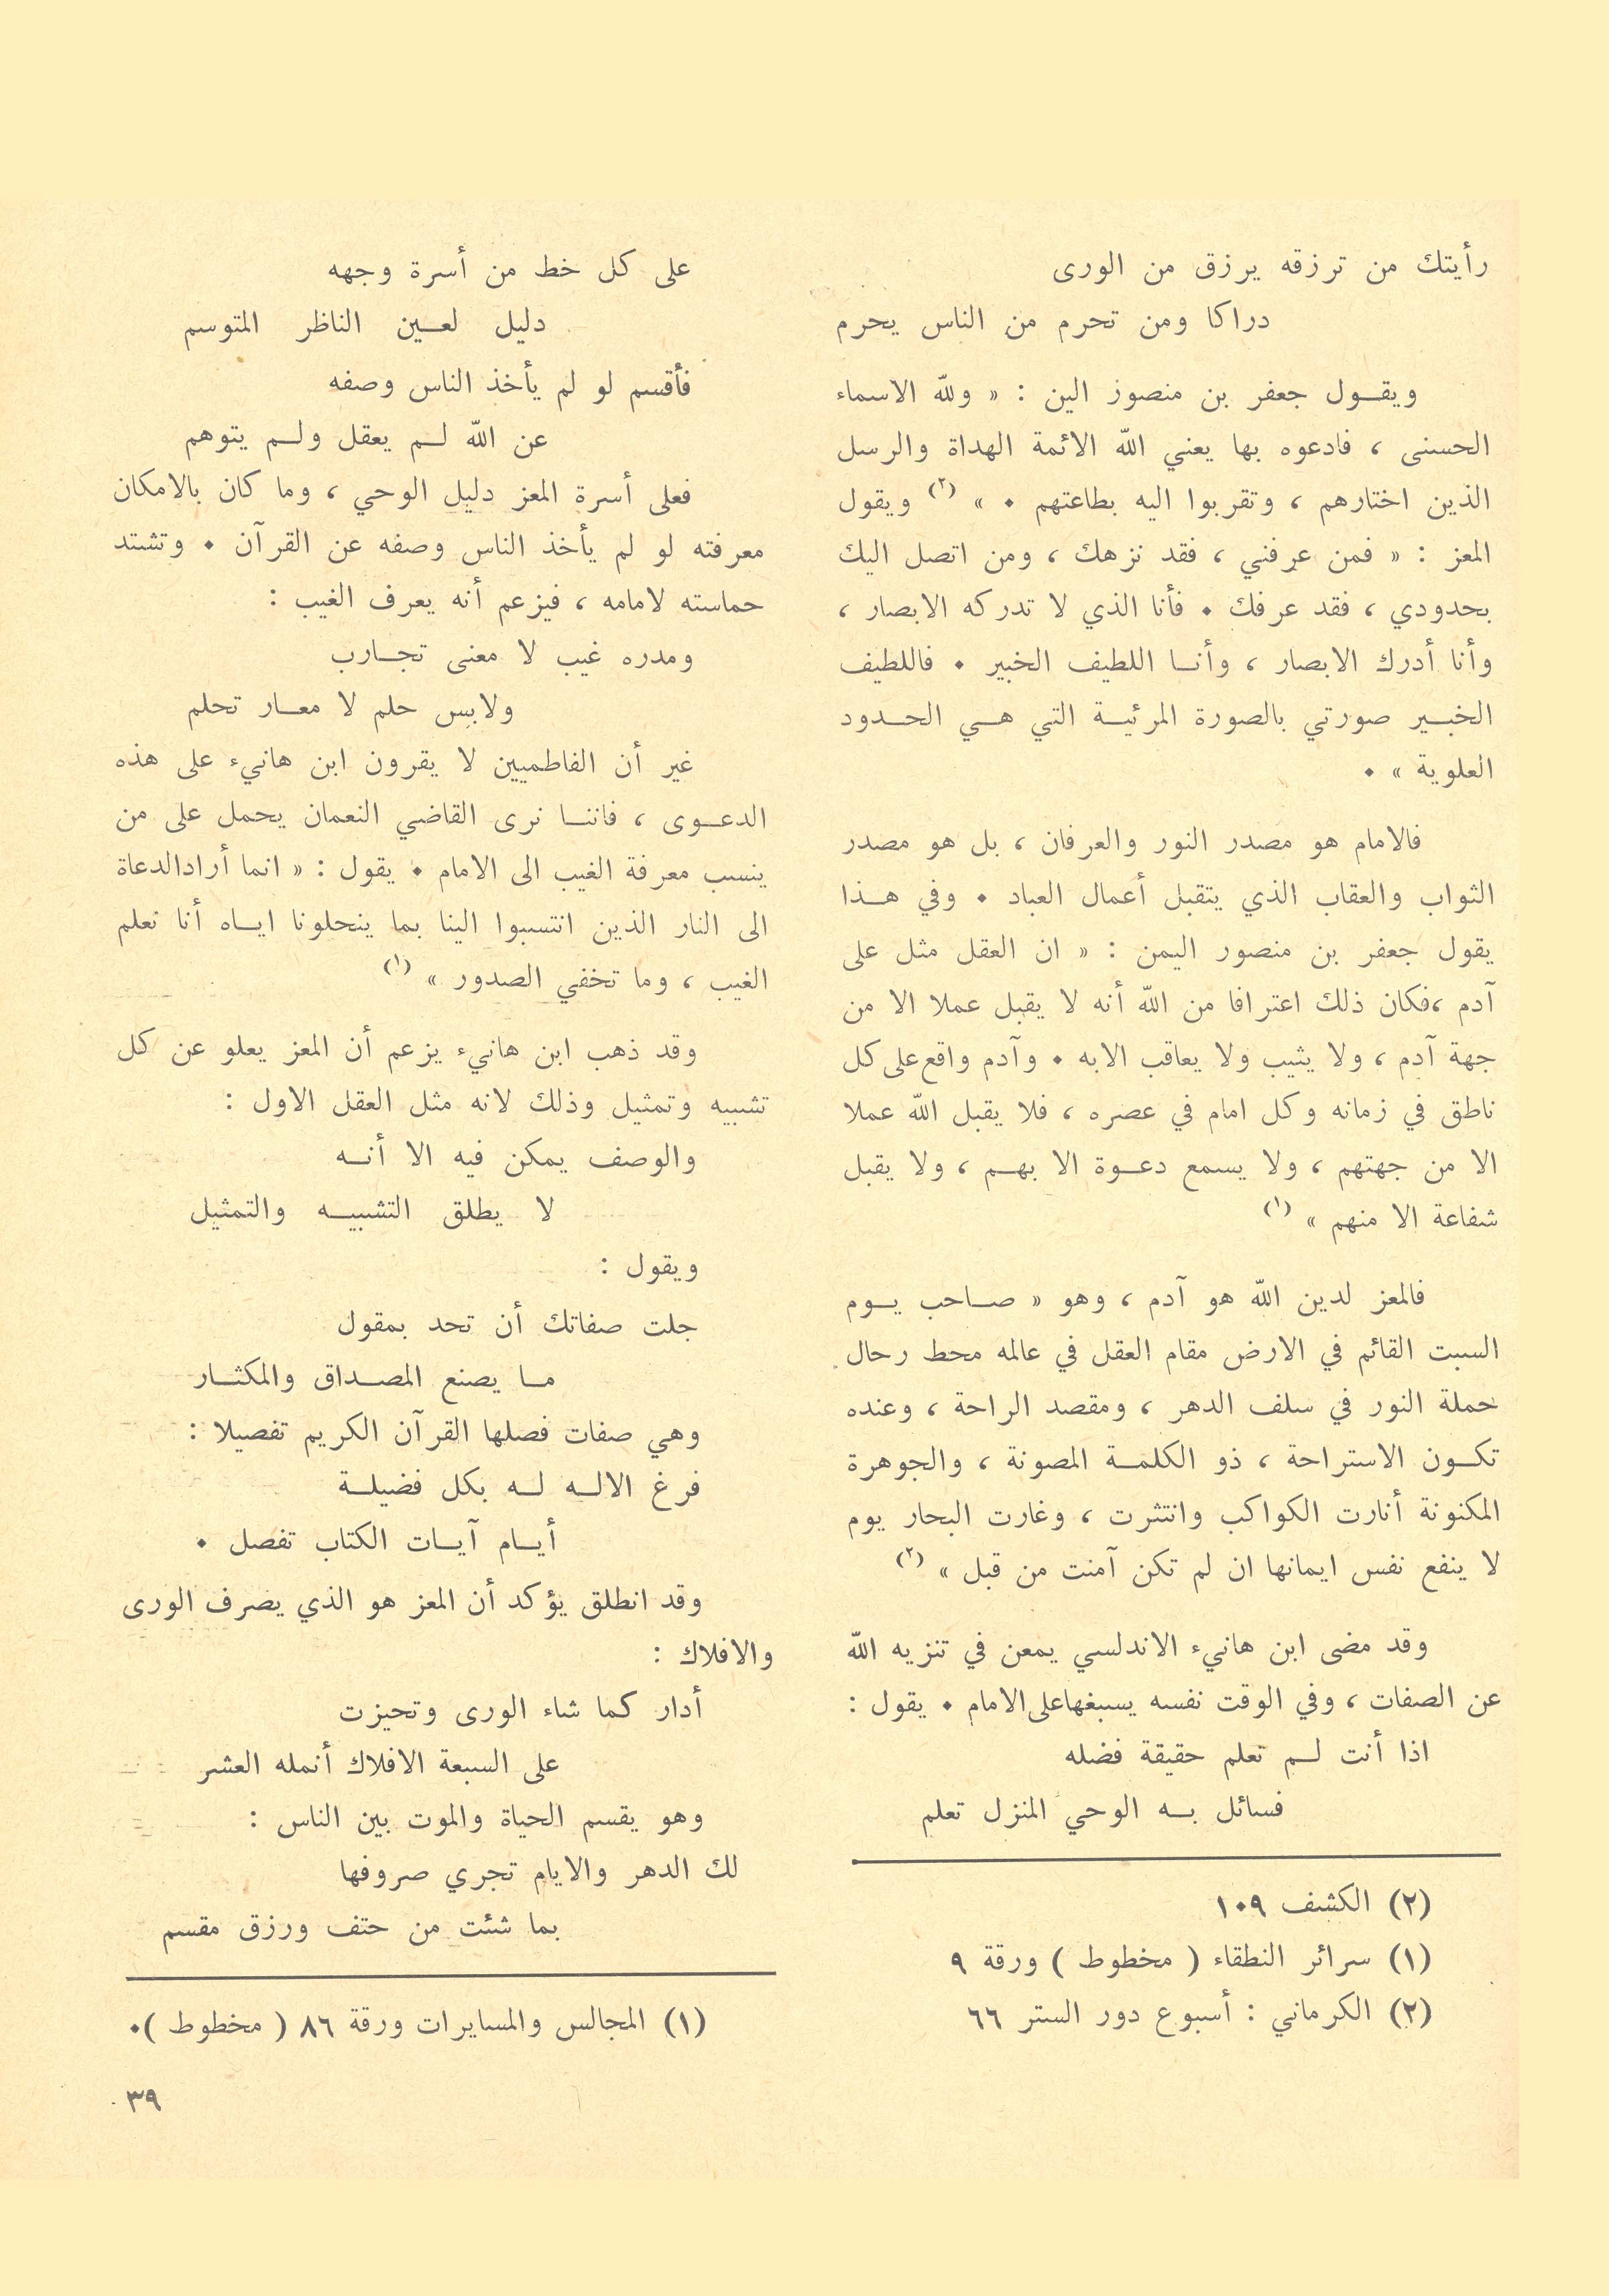 رأيتك من ترزقه يرزق من الورى
دراكا ومن تحرم من الناس يحرم
ويقول جعفر بن منصور الين : « ولله الاسماء
الحسنى ، فادعوه بها يعني الله الائمة الهداة والرسل
الذين اختارهم ، وتقربوا اليه بطاعتهم . » (٢) ويقول
المعز : « فمن عرفني ، فقد نزهك ، ومن اتصل اليك
بحدودي ، فقد عرفك . فأنا الذي لا تدركه الابصار ،
وأنا أدرك الابصار ، وأنا اللطيف الخبير . فاللطيف
الخبير صورتي بالصورة المرئية التي هي الحدود
العلوية » .
فالامام هو مصدر النور والعرفان ، بل هو مصدر
الثواب والعقاب الذي يتقبل أعمال العباد . وفي هذا
يقول جعفر بن منصور اليمن : « ان العقل مثل على
آدم ،فكان ذلك اعترافا من الله أنه لا يقبل عملا الا من
جهة آدم ، ولا يثيب ولا يعاقب الابه . وآدم واقع على كل
ناطق في زمانه وكل امام في عصره ، فلا يقبل الله عملا
الا من جهتهم ، ولا يسمع دعوة الا بهم ، ولا يقبل
شفاعة الا منهم » (١)
فالمعز لدين الله هو آدم ، وهو « صاحب يوم
السبت القائم في الارض مقام العقل في عالمه محط رحال
حملة النور في سلف الدهر ، ومقصد الراحة ، وعنده
تكون الاستراحة ، ذو الكلمة المصونة ، والجوهرة
المكنونة أنارت الكواكب وانتثرت ، وغارت البحار يوم
لا ينفع نفس ايمانها ان لم تكن آمنت من قبل » (٢)
وقد مضى ابن هانيء الاندلسي يمعن في تنزيه الله
عن الصفات ، وفي الوقت نفسه يسبغها على الامام . يقول :
اذا أنت لم تعلم حقيقة فضله
فسائل به الوحي المنزل تعلم
(٢) الكشف ١٠٩
(١) سرائر النطقاء ( مخطوط ) ورقة ٩
(٢) الكرماني : أسبوع دور الستر ٦٦
على كل خط من أسرة وجهه
دليل لعين الناظر المتوسم
فأقسم لو لم يأخذ الناس وصفه
عن الله لم يعقل ولم يتوهم
فعلى أسرة المعز دليل الوحي ، وما كان بالامكان
معرفته لو لم يأخذ الناس وصفه عن القرآن . وتشتد
حماسته لامامه ، فيزعم أنه يعرف الغيب :
ومدره غيب لا معنى تجارب
ولابس حلم لا معار تحلم
غير أن الفاطميين لا يقرون ابن هانيء على هذه
الدعوى ، فاننا نرى القاضي النعمان يحمل على من
ينسب معرفة الغيب الى الامام . يقول : « انما أرادالدعاة
الى النار الذين انتسبوا الينا بما ينحلونا اياه أنا نعلم
الغيب ، وما تخفي الصدور » (١)
وقد ذهب ابن هانيء يزعم أن المعز يعلو عن كل
تشبيه وتمثيل وذلك لانه مثل العقل الاول :
والوصف يمكن فيه الا أنه
لا يطلق التشبيه والتمثيل
ويقول :
جلت صفاتك أن تحد بمقول
ما يصنع المصداق والمكثار
وهي صفات فصلها القرآن الكريم تفصيلا :
فرغ الاله له بكل فضيلة
أيام آيات الكتاب تفصل .
وقد انطلق يؤكد أن المعز هو الذي يصرف الورى
والافلاك :
أدار كما شاء الورى وتحيزت
على السبعة الافلاك أنمله العشر
وهو يقسم الحياة والموت بين الناس :
لك الدهر والايام تجري صروفها
بما شئت من حتف ورزق مقسم
(١) المجالس والمسايرات ورقة ٨٦ ( مخطوط ).
٣٩